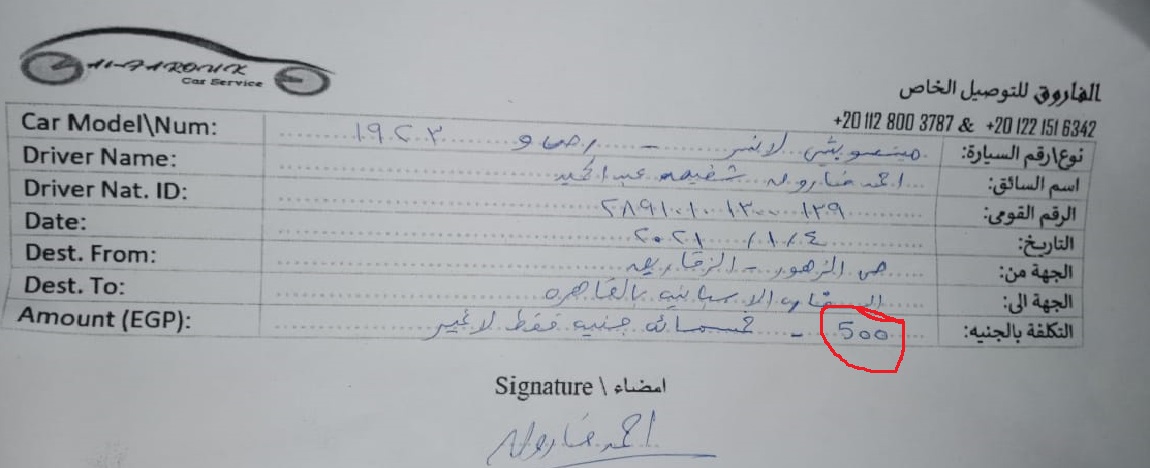 AL-FAROUK
Car Service
الفاروق للتوصيل الخاص
+20 112 800 3787 & +20 122 151 6342
Car Model\Num: ميتسوبيشي لانسر - ر ص و ١٩٢٣ نوع\رقم السيارة:
Driver Name: احمد فاروق شفيق عبد الحميد اسم السائق:
Driver Nat. ID: ٢٨٩١٠١٠١٣٠٠١٣٩ الرقم القومى:
Date: ٢٠٢١/١/٤ التاريخ:
Dest. From: حي الزهور - الزقازيق الجهة من:
Dest. To: السفارة الاسبانيه بالقاهره الجهة الى:
Amount (EGP): 500 - خمسمائة جنيه فقط لا غير التكلفة بالجنيه:
Signature \ امضاء
احمد فاروق